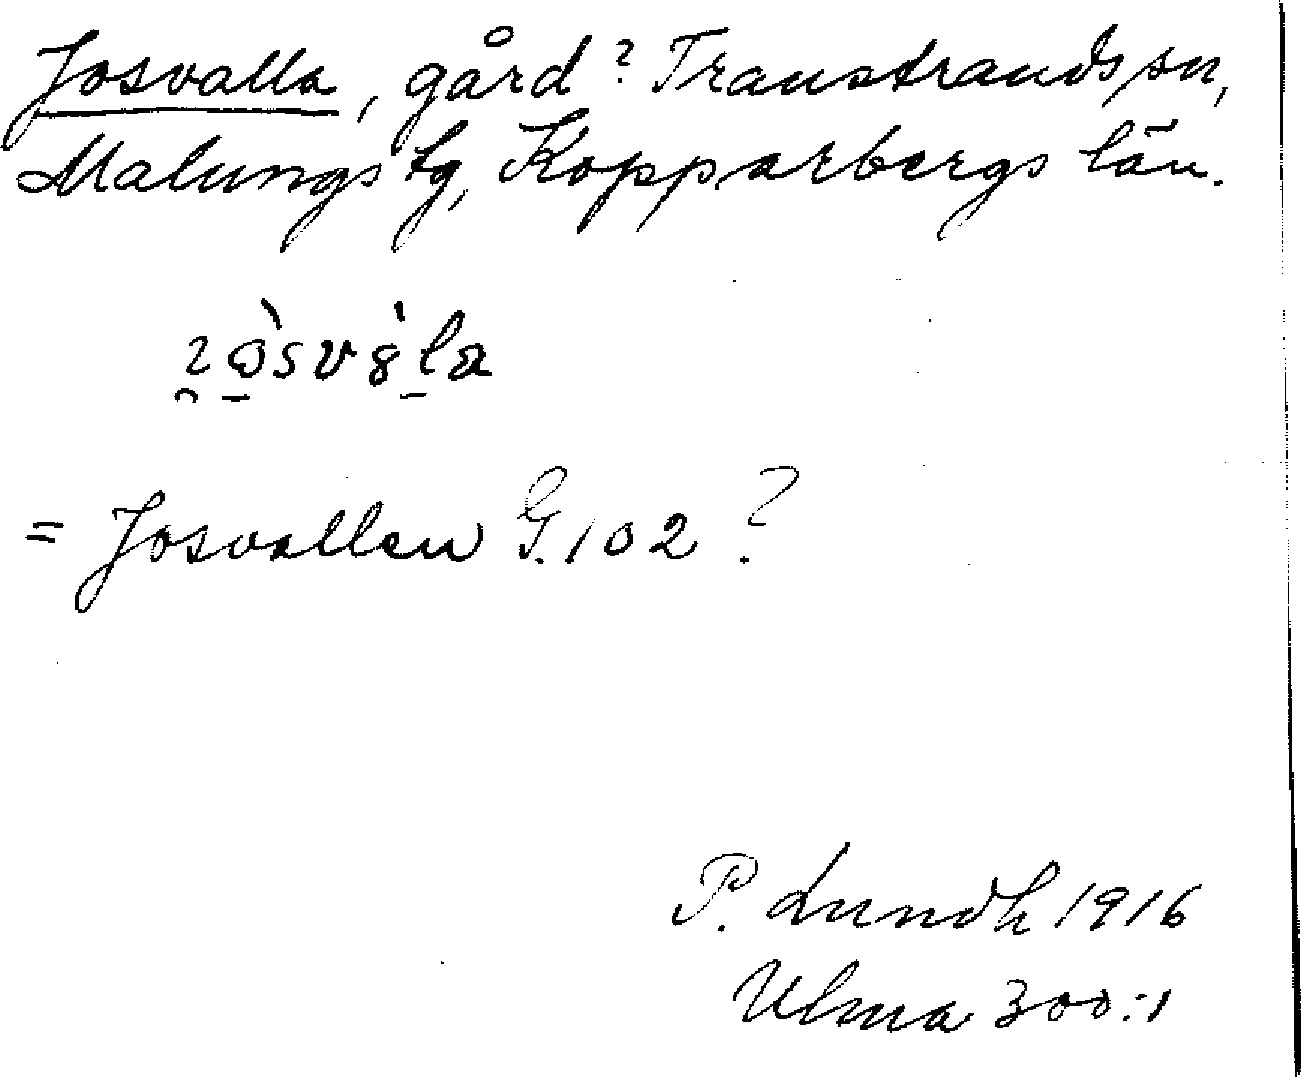 Josvalla, gård? Transtrands sn,
Malungs tg, Kopparbergs län.
= Josvallen G. 102?
P. Lundh 1916
Ulma 300:1